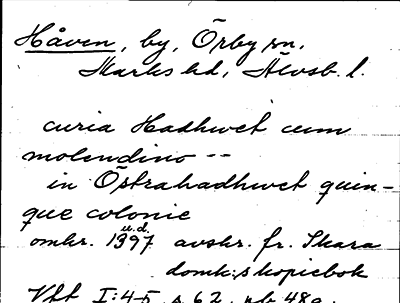 Håven, by, Örby sn,
Marks hd, Älvsb. l.
curia Hadhwet cum
molendino --
in Östrahadhwet quin-
que colonie
u.d.
omkr. 1397 avskr. fr. Skara
domk:s kopiebok
Vft I:4-5 s 62, nb 480.